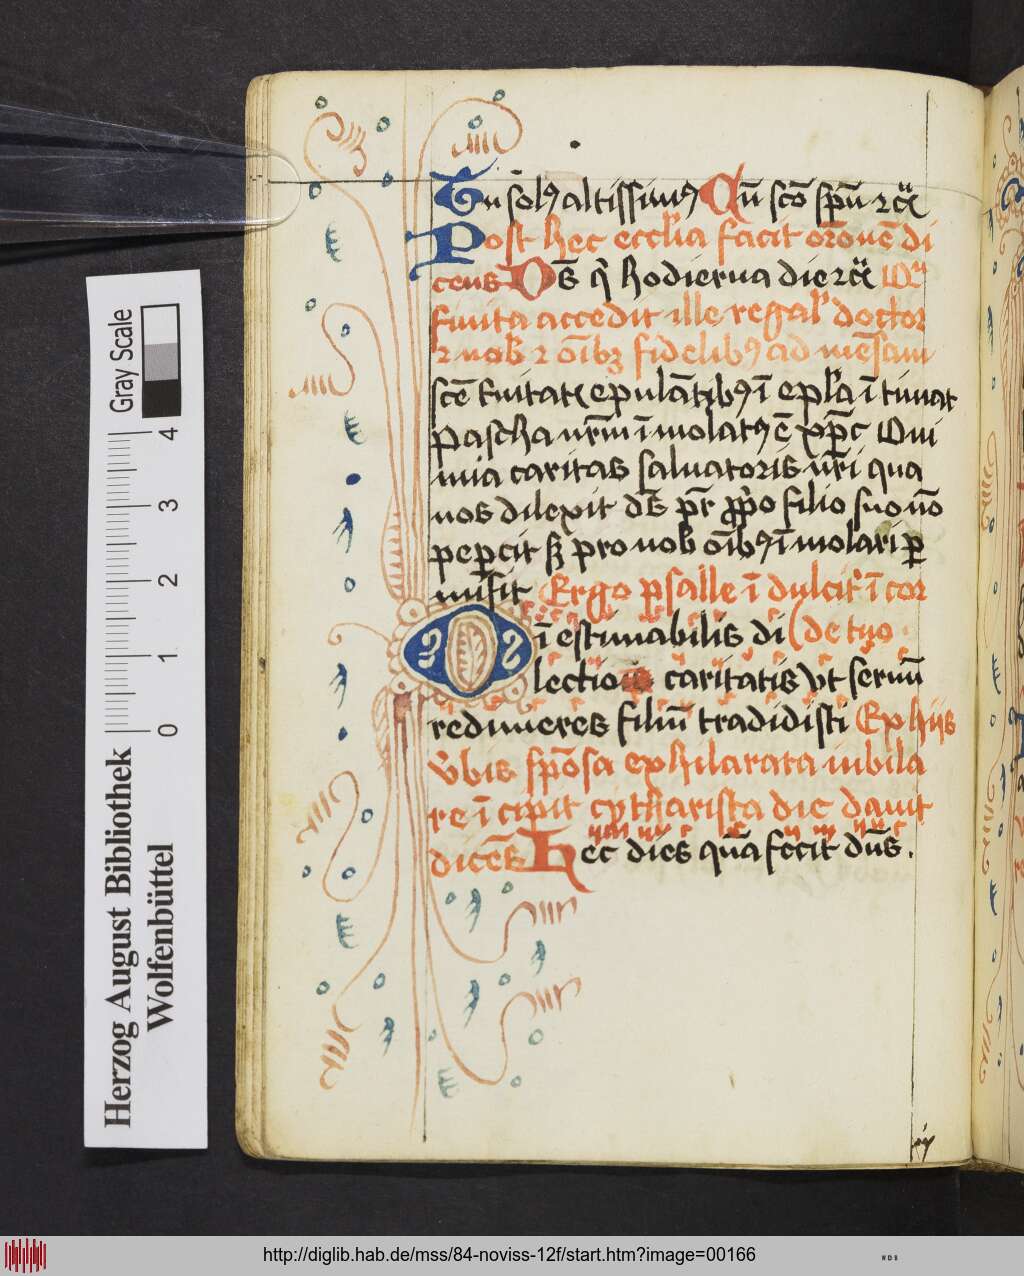 Tu solꝰ altissimꝰ Cū sc̄o sp̄u ⁊cͣ
Post hec eccl̄ia facit or̄onē di
cens Ds̄ qͥ hodierna die ⁊cͣ
finita accedit ille regal̓ doctor
⁊ nob̓ ⁊ oībꝫ fidelibꝰ ad mēsam
sc̄e epulātibꝰ ī ep̄la ītimat
Pascha nr̄m īmolatꝰ ē xp̄c O ni
mia caritas saluatoris nr̄i qua
nos dilexit ds̄ pr̄ ꝓpͥo filio suo nō
peꝑcit sꝫ pro nob̓ oībꝰ īmolari ꝑ
misit Ergo psalle ī dulcit̓ ī cor
de tuo
O īestimabilis di
lectio caritatis Ut seruū
redimeres filiū tradidisti Ex hijs
v̓bis sp̄osa exhilarata iubila
re īcipit cytharista die dauit
dicēs Hec dies quā fecit dn̄s .
Herzog August Bibliothek
Wolfenbüttel
Gray Scale
0 1 2 3 4
http://diglib.hab.de/mss/84-noviss-12f/start.htm?image=00166